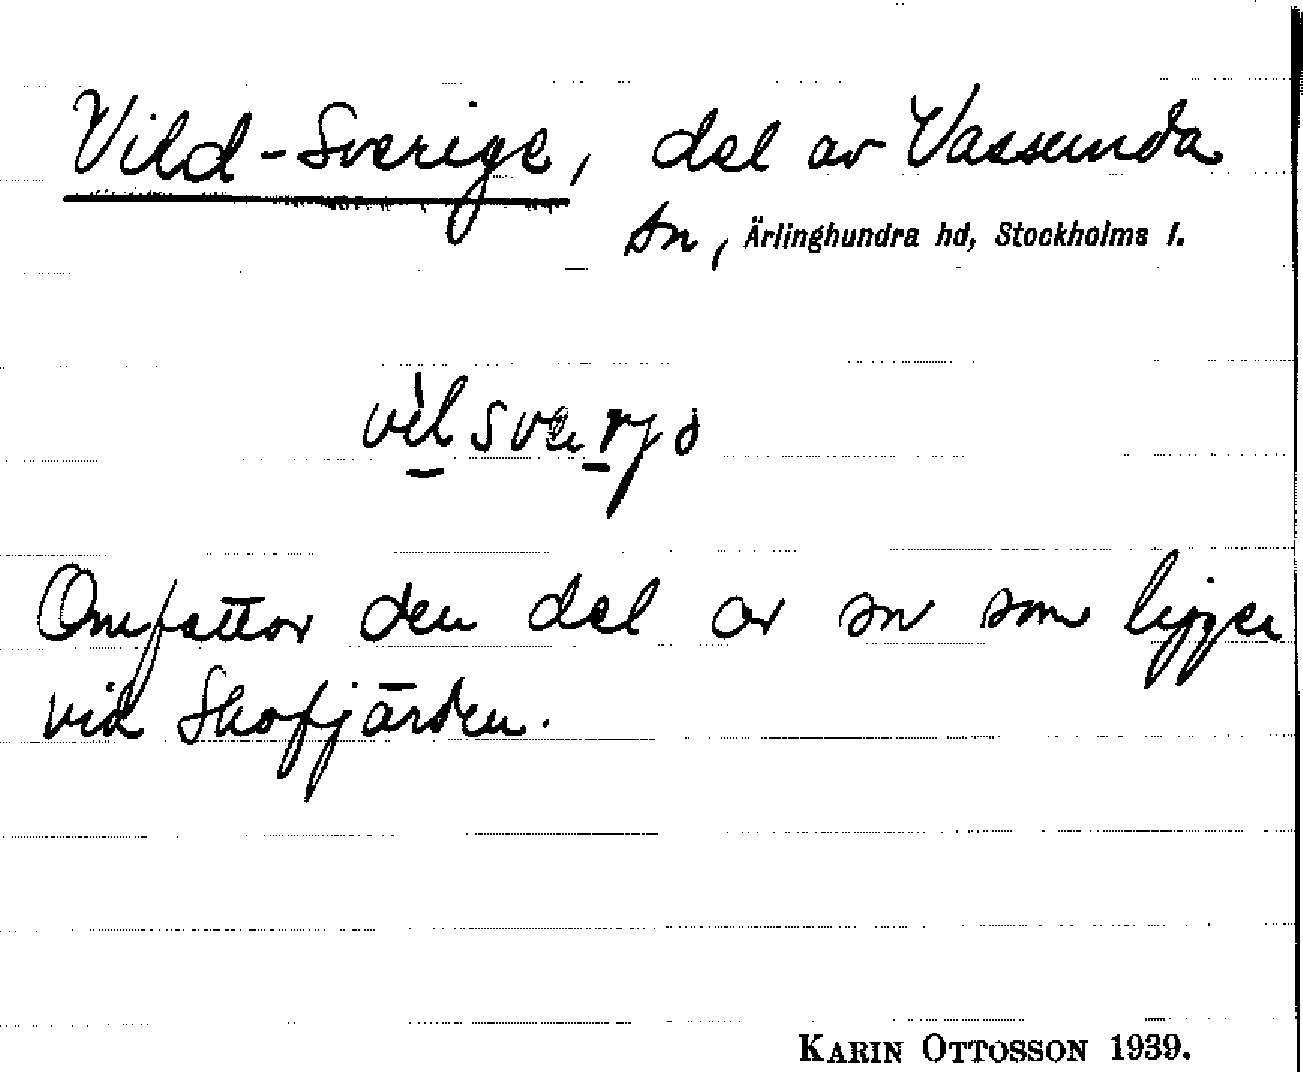 Vild-Sverige, del av Vassunda
sn, Ärlinghundra hd, Stockholms l.
Omfattar den del av sn som ligger
vid Skofjärden.
KARIN OTTOSSON 1939.